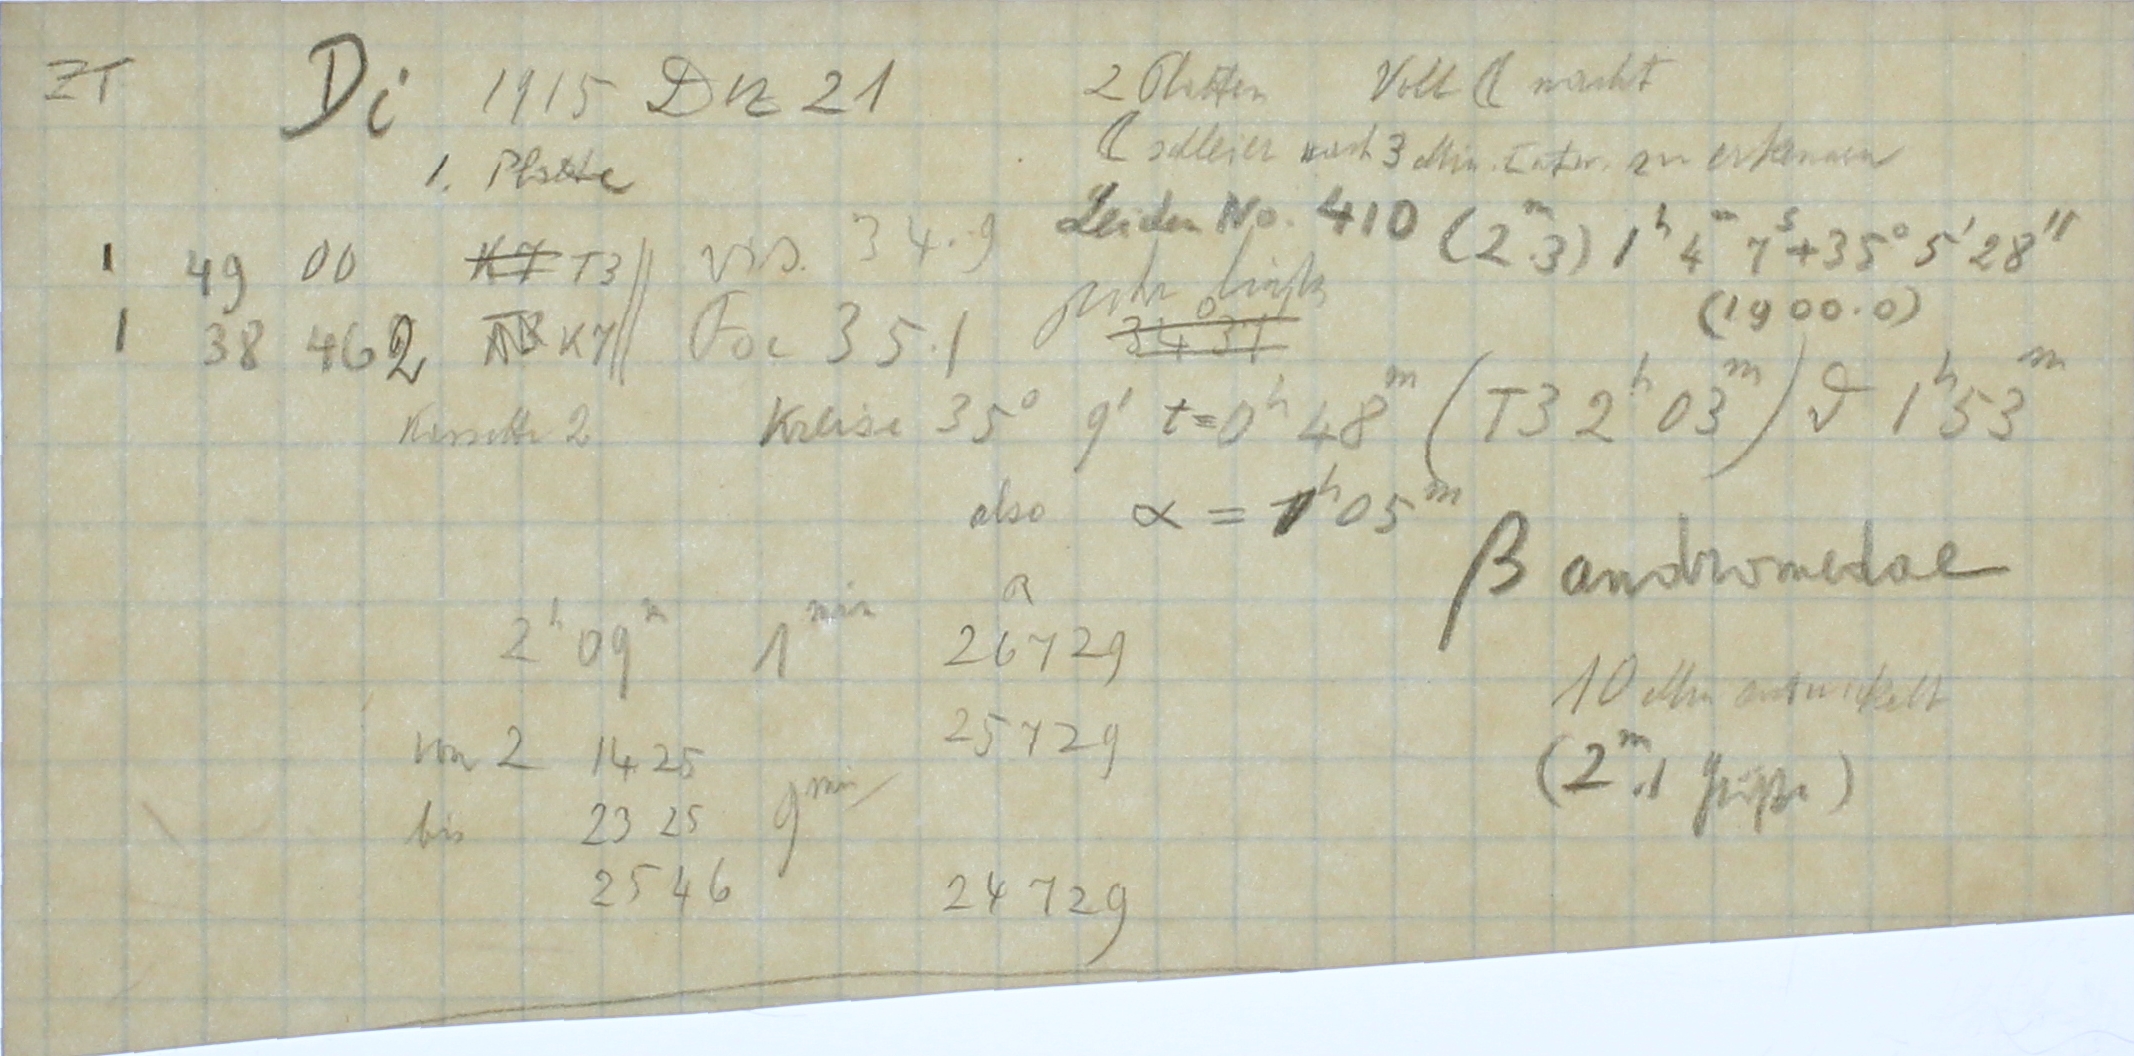 ZT Di 1915 Dez 21 2 Platten Voll ☾ nacht
1. Platte ☾ schleier nach 3 Min. Entw. zu erkennen
Leiden No. 410 (2ᵐ.3) 1ʰ 4ᵐ 7ˢ +35° 5' 28"
1 49 00 K7 T3 || vis. 34.9 sehr
(1900.0)
1 38 462 T3 K7 || Foc 35.1 34° 37
Kassette 2 Kreise 35° 9' t=0ʰ 48ᵐ (T3 2ʰ 03ᵐ) ϑ 1ʰ 53ᵐ
also α = 1ʰ 05ᵐ
β andromedae
2ʰ 09ᵐ 1 min 26729
10 Min entwickelt
von 2 14 25 25729
(2ᵐ.1 Größe)
bis 23 25 9 min
25 46 24729